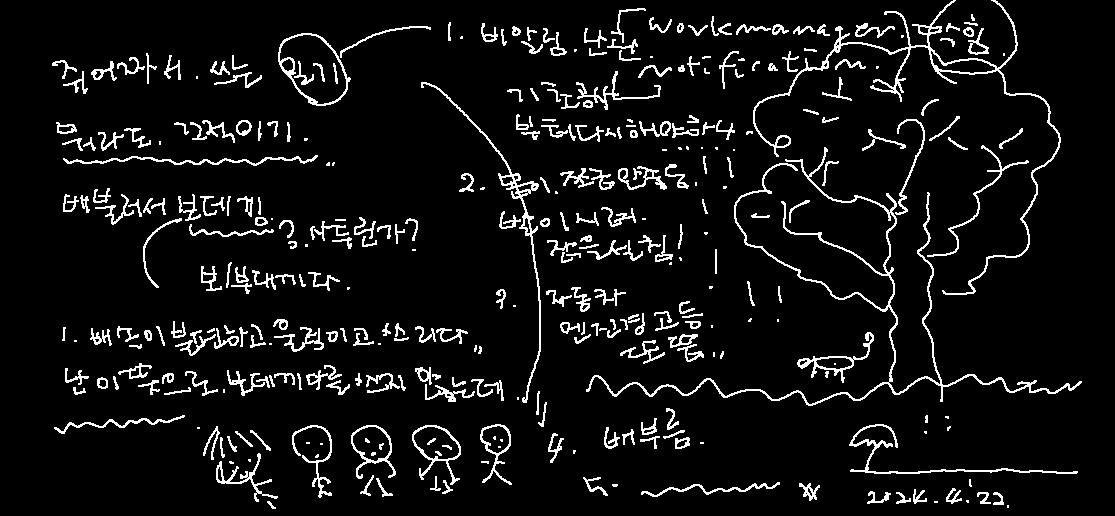 쥐어짜서. 쓰는 일기.
뭐라도. 끄적이기.
배불러서 보데게
사투린가?
보/부대끼다.
1. 배속이 불편하고. 울렁이고. 쓰리다.,
난 이 뜻으로. 보데끼다를 쓰는데
1. 바알림. 난관 workmanager.
notification.
기초공사
부터다시해야하나..
2. 몸이. 조금안좋음.!!
발이시려.
잠을설침!
3. 자동차
엔진경고등.
또뜸..
4. 배부름.
5.
2024. 4. 22.